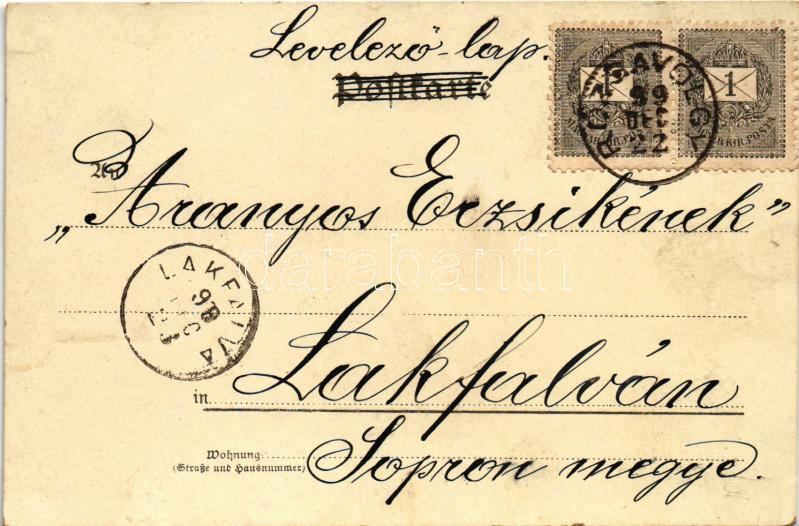 Levelező-lap.
Postkarte
An
„Aranyos Erzsikének”
in Lakfalván
Wohnung
(Straße und Hausnummer)
Sopron megye.
1
1
MAGYAR KIR. POSTA
99
DEC
22
LAKFALVA
darabanth